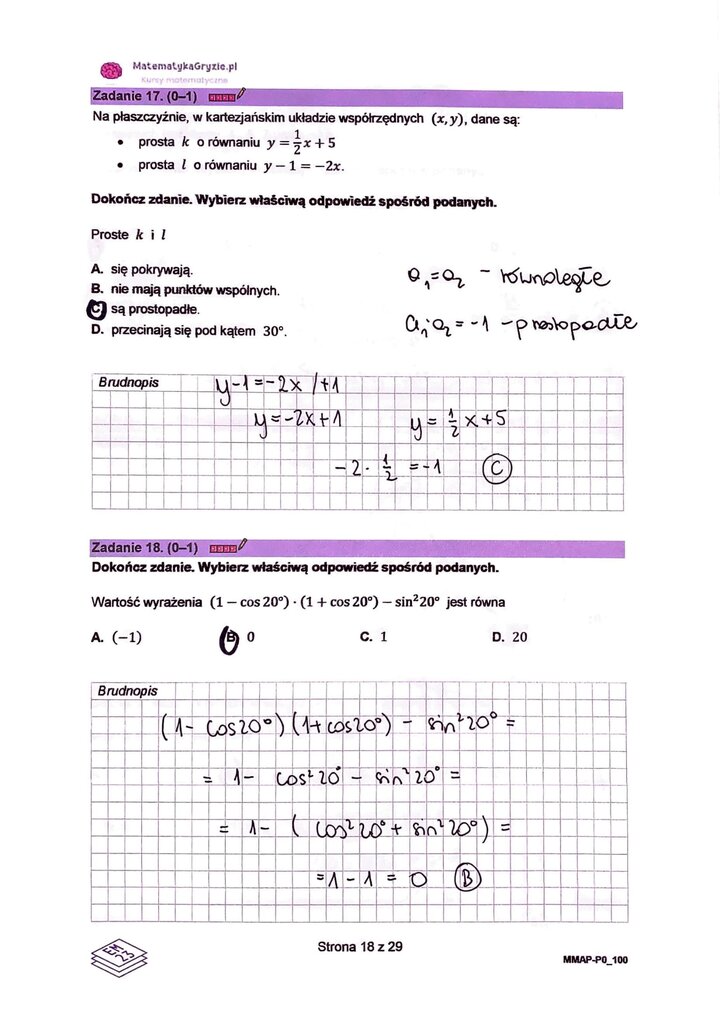 MatematykaGryzie.pl
Kursy matematyczne
Zadanie 17. (0–1)
Na płaszczyźnie, w kartezjańskim układzie współrzędnych (x, y), dane są:
• prosta k o równaniu y = 1/2 x + 5
• prosta l o równaniu y − 1 = −2x.
Dokończ zdanie. Wybierz właściwą odpowiedź spośród podanych.
Proste k i l
A. się pokrywają.
B. nie mają punktów wspólnych.
C. są prostopadłe.
D. przecinają się pod kątem 30°.
a₁=a₂ – równoległe
a₁·a₂ = -1 – prostopadłe
Brudnopis
y-1=-2x /+1
y=-2x+1 y= 1/2 x+5
-2 · 1/2 = -1 C
Zadanie 18. (0–1)
Dokończ zdanie. Wybierz właściwą odpowiedź spośród podanych.
Wartość wyrażenia (1 − cos 20°) · (1 + cos 20°) − sin²20° jest równa
A. (−1) B. 0 C. 1 D. 20
Brudnopis
(1- cos20°)(1+cos20°) - sin²20° =
= 1- cos²20° - sin²20° =
= 1- ( cos²20°+ sin²20°) =
=1-1 = 0 B
EM
23
Strona 18 z 29
MMAP-P0_100